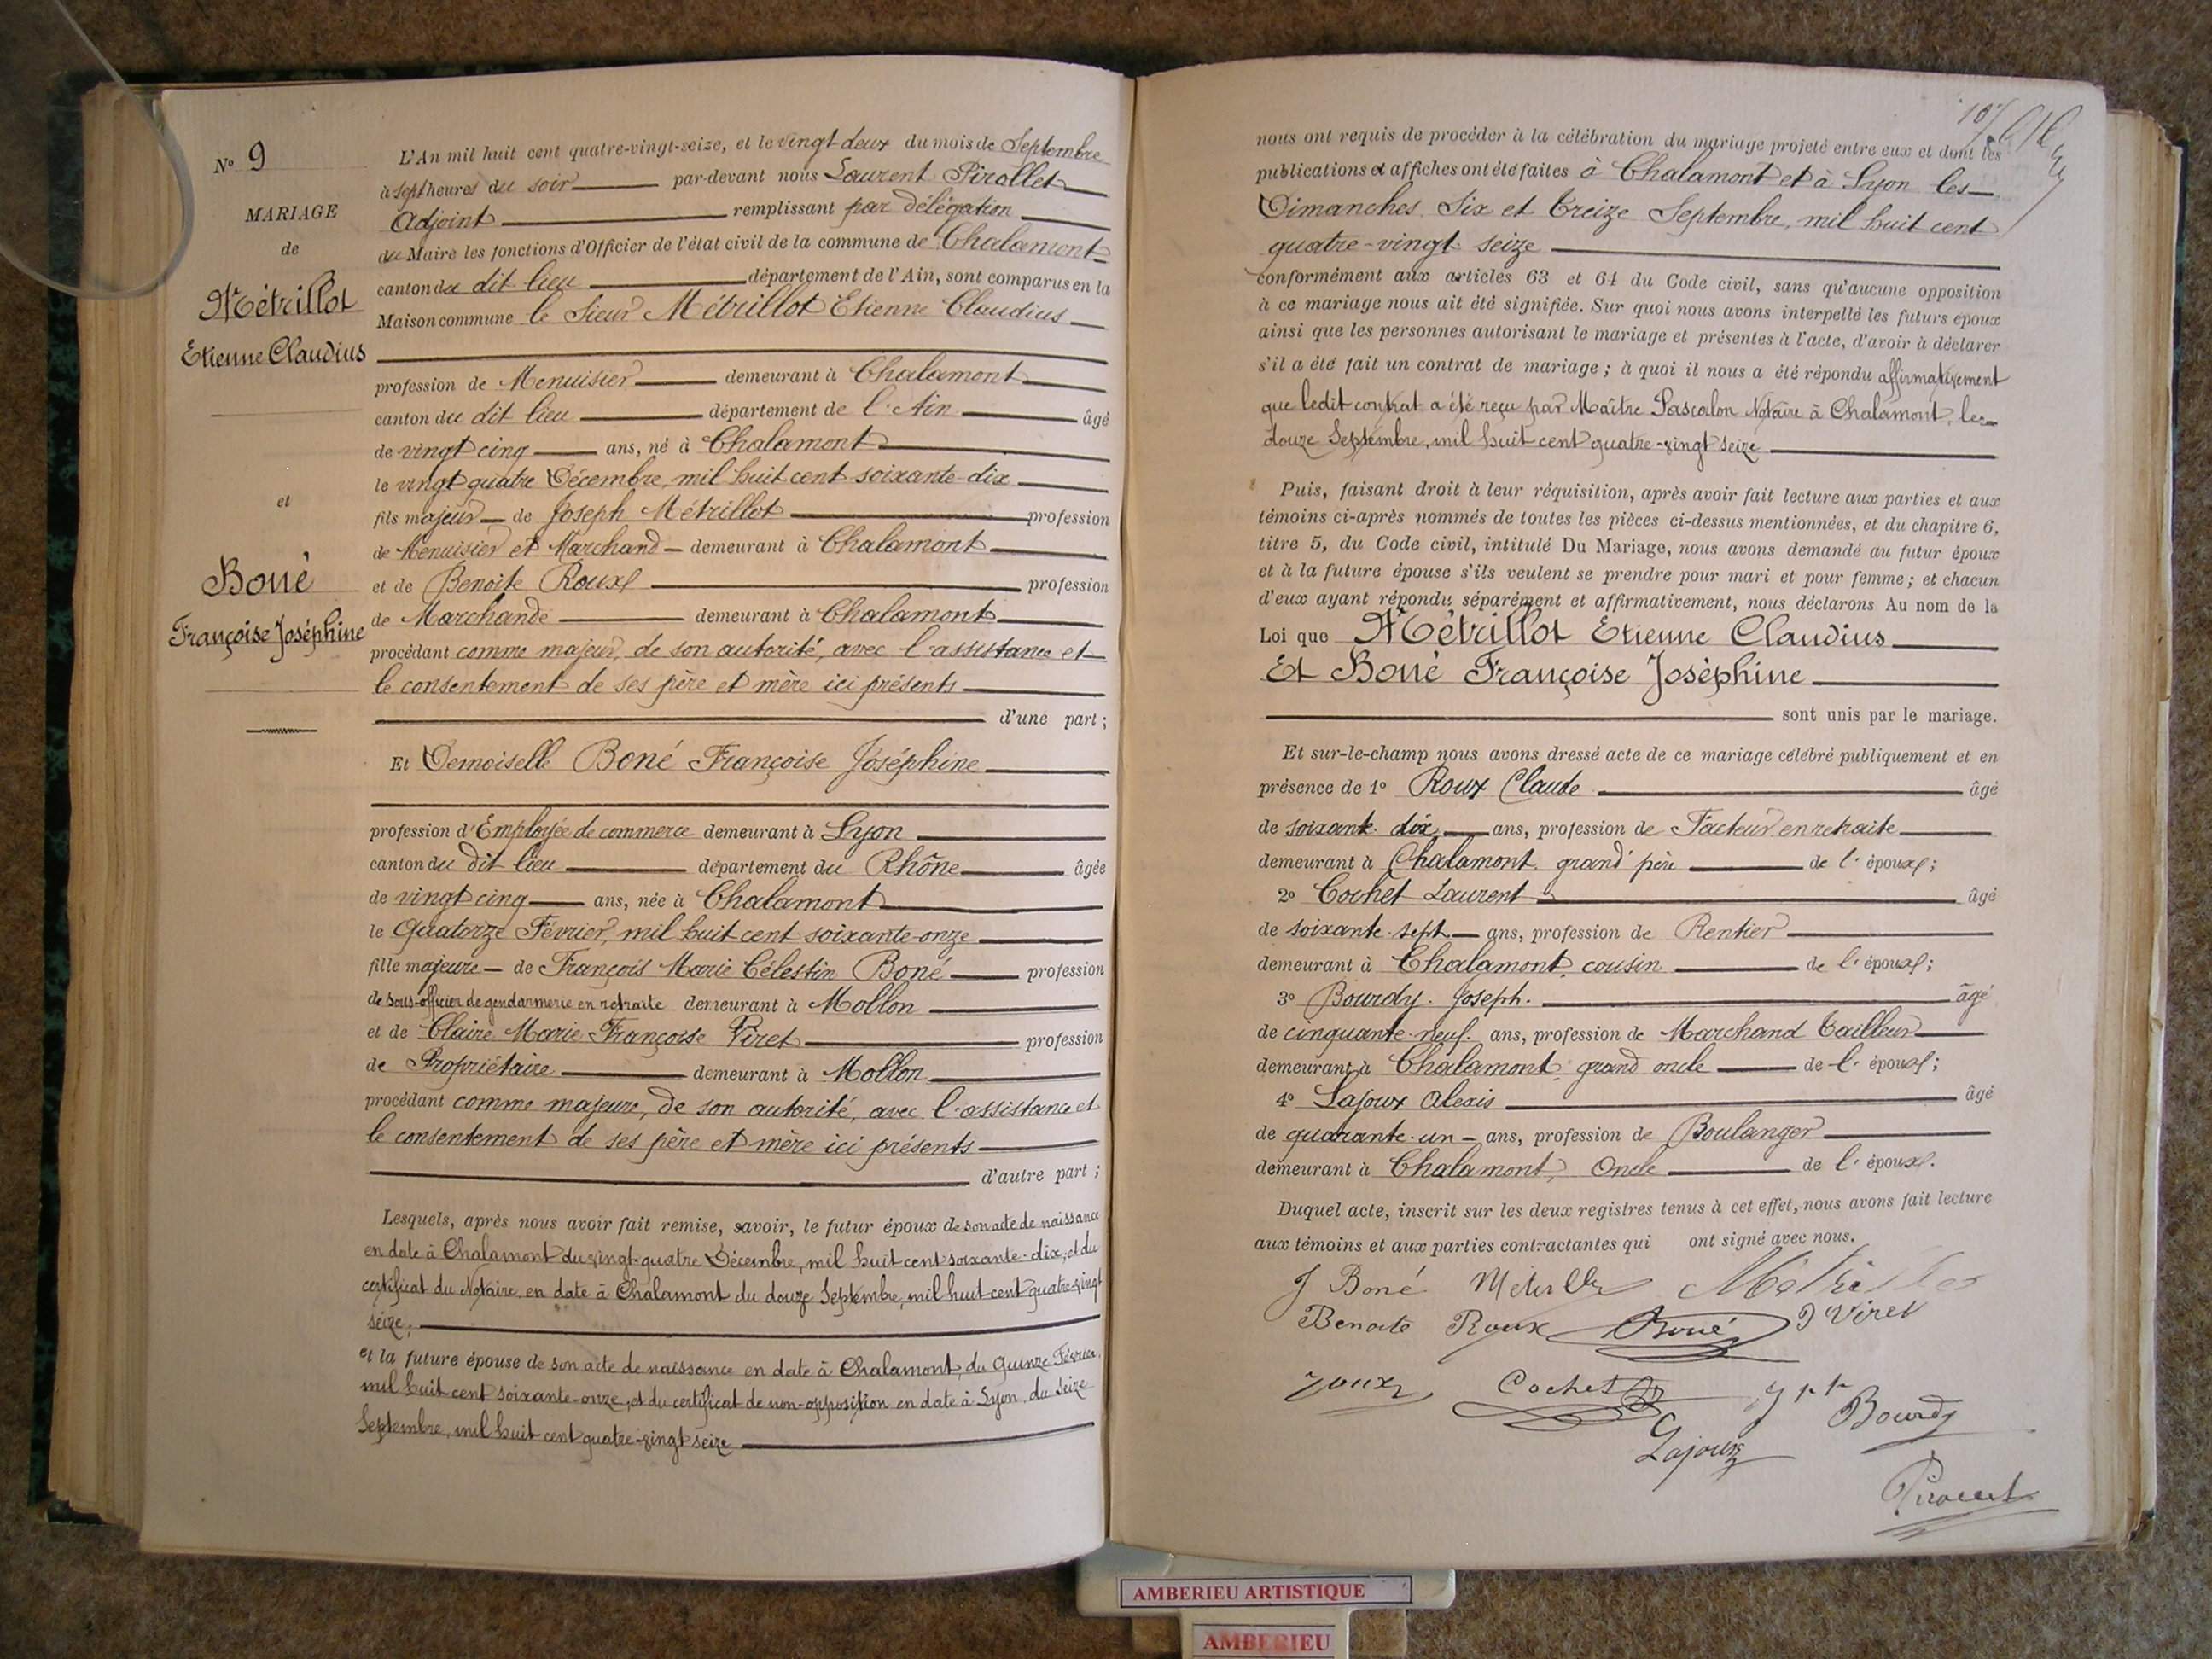 N° 9
MARIAGE
de
Métrillot
Etienne Claudius
et
Boné
Françoise Joséphine
L'An mil huit cent quatre-vingt-seize, et le vingt deux du mois de Septembre
à sept heures du soir par-devant nous Laurent Pirollet
Adjoint remplissant par délégation
du Maire les fonctions d'Officier de l'état civil de la commune de Chalamont
canton du dit lieu département de l'Ain, sont comparus en la
Maison commune le Sieur Métrillot Etienne Claudius
profession de Menuisier demeurant à Chalamont
canton du dit lieu département de l'Ain âgé
de vingt cinq ans, né à Chalamont
le vingt quatre Décembre, mil huit cent soixante-dix
fils majeur de Joseph Métrillot profession
de Menuisier et Marchand demeurant à Chalamont
et de Benoite Roux profession
de Marchande demeurant à Chalamont
procédant comme majeur, de son autorité, avec l'assistance et
le consentement de ses père et mère ici présents
d'une part ;
Et Demoiselle Boné Françoise Joséphine
profession d'Employée de commerce demeurant à Lyon
canton du dit lieu département du Rhône âgée
de vingt cinq ans, née à Chalamont
le Quatorze Février, mil huit cent soixante-onze
fille majeure de François Marie Célestin Boné profession
de sous-officier de gendarmerie en retraite demeurant à Mollon
et de Claire Marie Françoise Viret profession
de Propriétaire demeurant à Mollon
procédant comme majeure, de son autorité, avec l'assistance et
le consentement de ses père et mère ici présents
d'autre part ;
Lesquels, après nous avoir fait remise, savoir, le futur époux de son acte de naissance
en date à Chalamont du vingt-quatre Décembre, mil huit cent soixante-dix, et du
certificat du Notaire en date à Chalamont du douze Septembre, mil huit cent quatre-vingt
seize,
et la future épouse de son acte de naissance en date à Chalamont, du Quinze Février
mil huit cent soixante-onze, et du certificat de non-opposition en date à Lyon du seize
Septembre, mil huit cent quatre-vingt seize
nous ont requis de procéder à la célébration du mariage projeté entre eux et dont les
publications et affiches ont été faites à Chalamont et à Lyon les
Dimanches Six et treize Septembre, mil huit cent
quatre-vingt seize
conformément aux articles 63 et 64 du Code civil, sans qu'aucune opposition
à ce mariage nous ait été signifiée. Sur quoi nous avons interpellé les futurs époux
ainsi que les personnes autorisant le mariage et présentes à l'acte, d'avoir à déclarer
s'il a été fait un contrat de mariage ; à quoi il nous a été répondu affirmativement
que ledit contrat a été reçu par Maître Pascalon Notaire à Chalamont, le
douze Septembre, mil huit cent quatre-vingt seize
Puis, faisant droit à leur réquisition, après avoir fait lecture aux parties et aux
témoins ci-après nommés de toutes les pièces ci-dessus mentionnées, et du chapitre 6,
titre 5, du Code civil, intitulé Du Mariage, nous avons demandé au futur époux
et à la future épouse s'ils veulent se prendre pour mari et pour femme ; et chacun
d'eux ayant répondu séparément et affirmativement, nous déclarons Au nom de la
Loi que Métrillot Etienne Claudius
Et Boné Françoise Joséphine
sont unis par le mariage.
Et sur-le-champ nous avons dressé acte de ce mariage célébré publiquement et en
présence de 1° Roux Claude âgé
de soixante-dix ans, profession de Facteur en retraite
demeurant à Chalamont grand père de l'époux ;
2° Cochet Laurent âgé
de soixante-sept ans, profession de Rentier
demeurant à Chalamont, cousin de l'époux ;
3° Bourdy Joseph. âgé
de cinquante-neuf ans, profession de Marchand tailleur
demeurant à Chalamont grand oncle de l'époux ;
4° Lajoux Alexis âgé
de quarante-un ans, profession de Boulanger
demeurant à Chalamont, Oncle de l'époux.
Duquel acte, inscrit sur les deux registres tenus à cet effet, nous avons fait lecture
aux témoins et aux parties contractantes qui ont signé avec nous.
J Boné
Benoite Roux Boné Viret
Cochet
Bourdy
Lajoux
AMBERIEU ARTISTIQUE
AMBERIEU